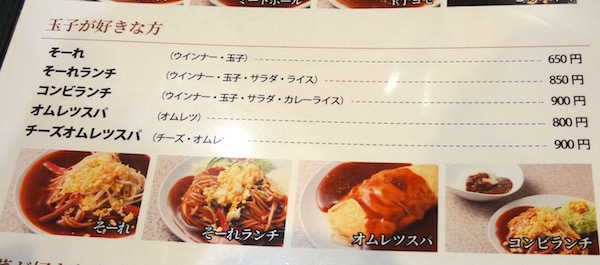 ミートボール
玉子が好きな方
そーれ (ウインナー・玉子) 650円
そーれランチ (ウインナー・玉子・サラダ・ライス) 850円
コンビランチ (ウインナー・玉子・サラダ・カレーライス) 900円
オムレツスパ (オムレツ) 800円
チーズオムレツスパ (チーズ・オムレツ) 900円
そーれ
そーれランチ
オムレツスパ
コンビランチ